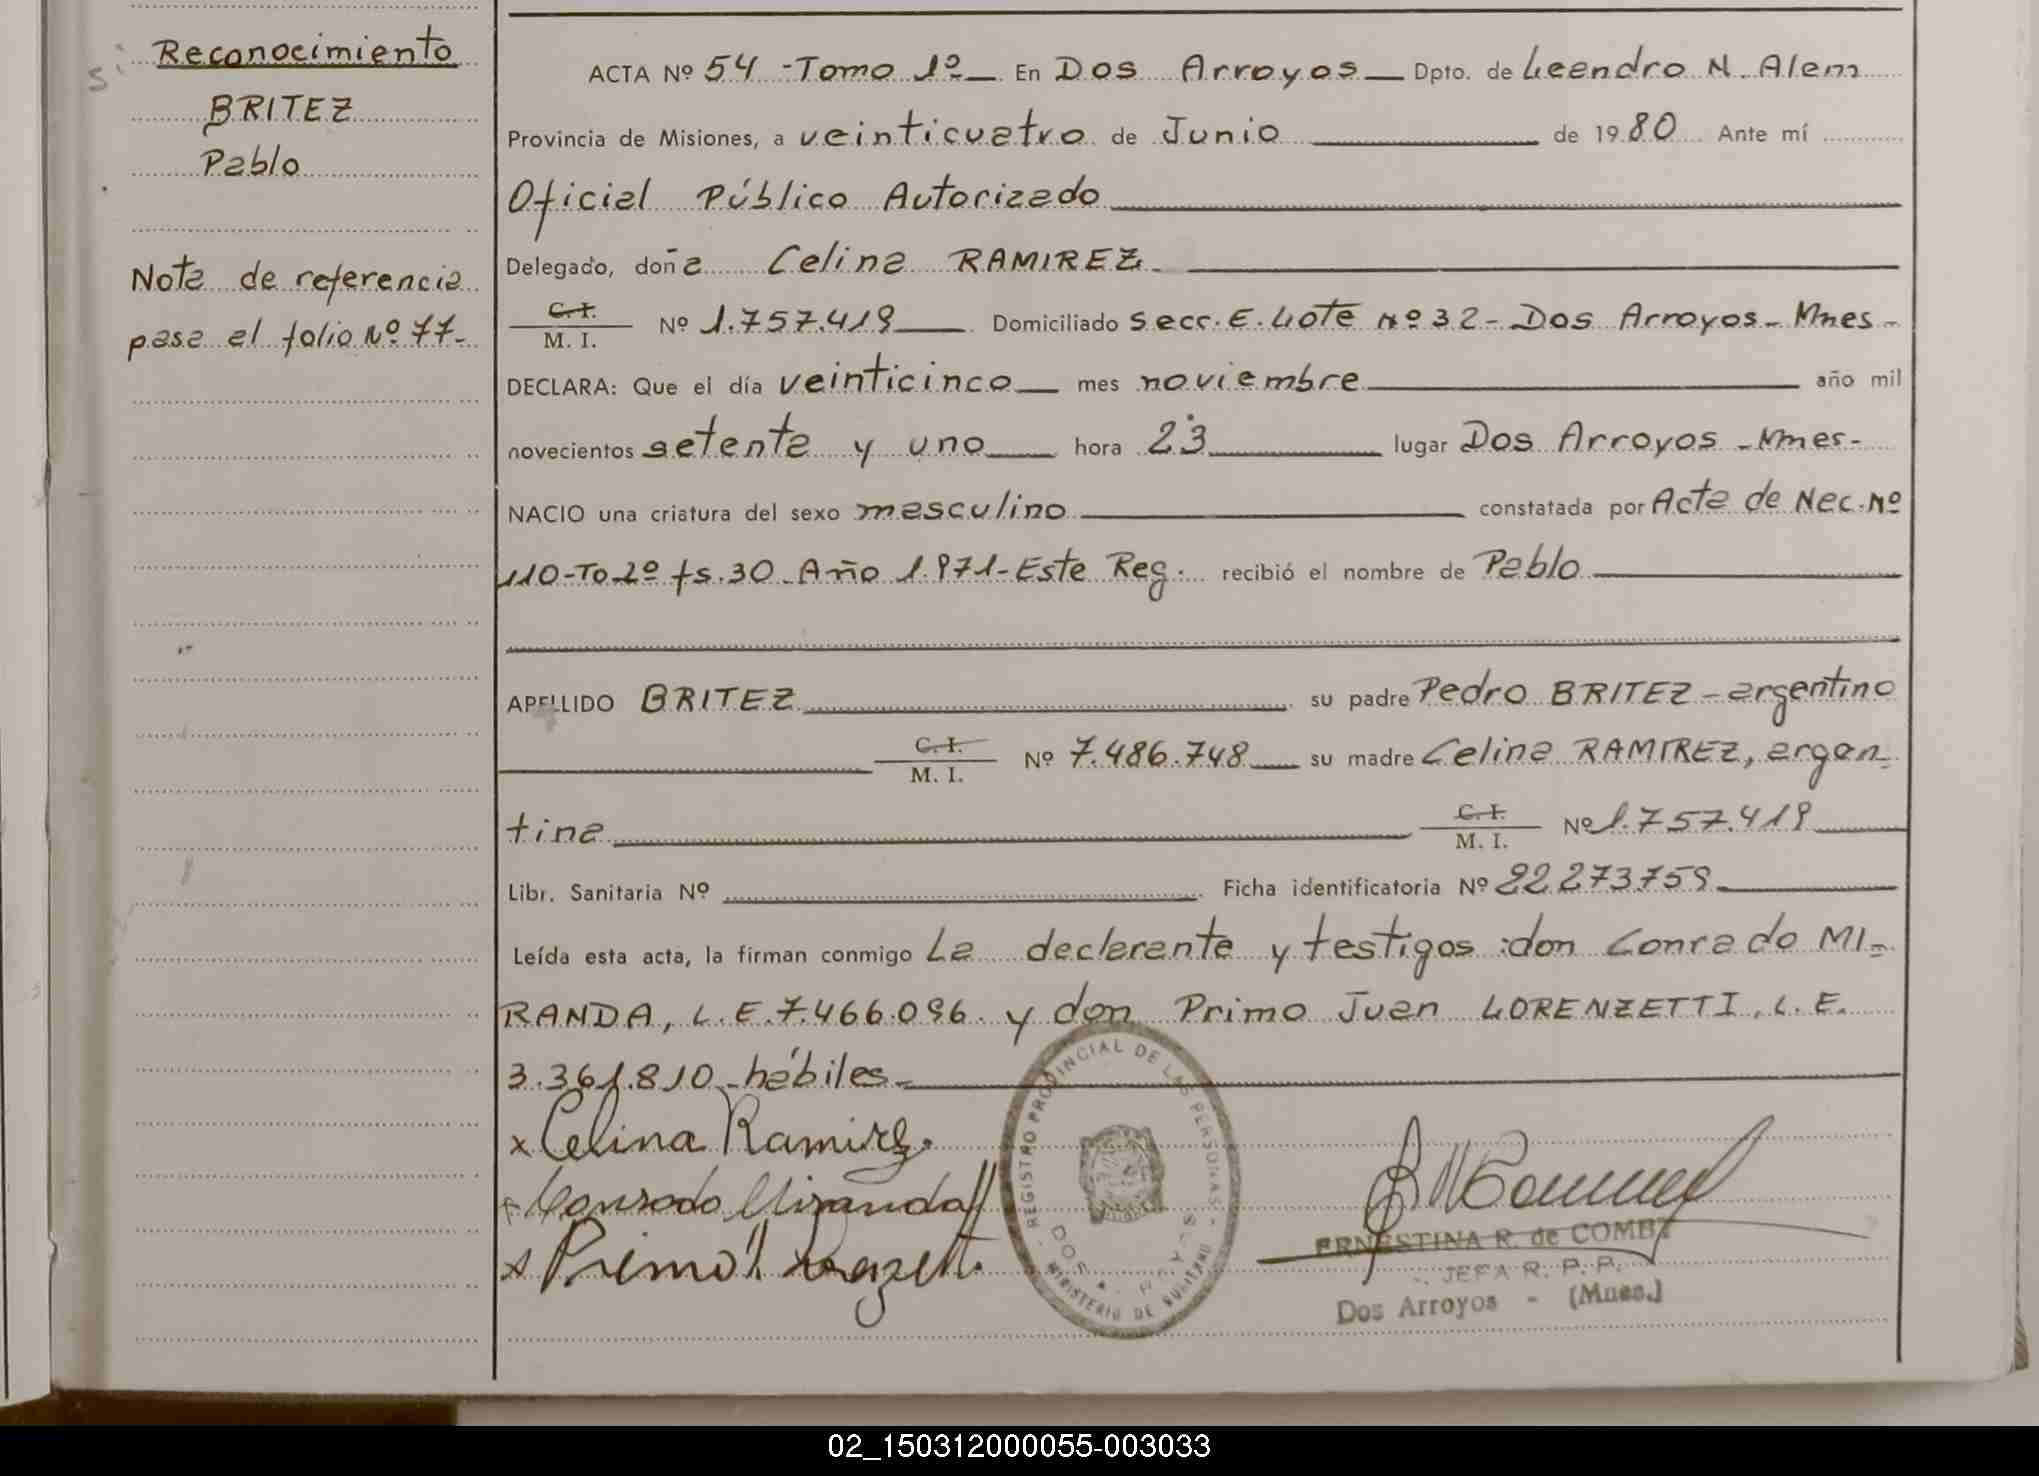 Reconocimiento
BRITEZ
Pablo
Nota de referencia
pasa al folio Nº 77-
ACTA Nº 54 - Tomo 1º En Dos Arroyos Dpto. de Leandro N. Alem
Provincia de Misiones, a veinticuatro de Junio de 1980 Ante mí
Oficial Público Autorizado
Delegado, doña Celina RAMIREZ
C. I.
M. I. Nº 1.757.419 Domiciliado Secc. E. Lote Nº 32 - Dos Arroyos - Mnes -
DECLARA: Que el día veinticinco mes noviembre año mil
novecientos setenta y uno hora 23 lugar Dos Arroyos - Mnes -
NACIO una criatura del sexo masculino constatada por Acta de Nac. Nº
110-To 2º fs. 30 Año 1.971 - Este Reg. recibió el nombre de Pablo
APELLIDO BRITEZ su padre Pedro BRITEZ - argentino
C. I.
M. I. Nº 7.486.748 su madre Celina RAMIREZ, argen-
tina C. I.
M. I. Nº 1.757.419
Libr. Sanitaria Nº Ficha identificatoria Nº 22273759
Leída esta acta, la firman conmigo La declarante y testigos: don Conrado MI-
RANDA, L.E. 7.466.096 y don Primo Juan LORENZETTI, L.E.
3.361.810 - hábiles -
x Celina Ramirez
x Conrado Miranda
x Primo J. Lorenzetti
REGISTRO PROVINCIAL DE LAS PERSONAS
DOS
MINISTERIO DE
ERNESTINA R. de COMBY
JEFA R. P. P.
Dos Arroyos - (Mnes.)
02_150312000055-003033